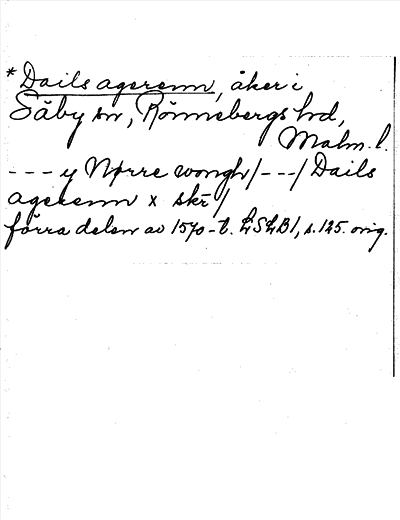 *Dails agerenn, åker i
Säby sn, Rönnebergs hd,
Malm. l.
--- y Nørre wongh/---/Dails
agerenn x skr/
förra delen av 1570-t. LSLB1, s. 125. orig.